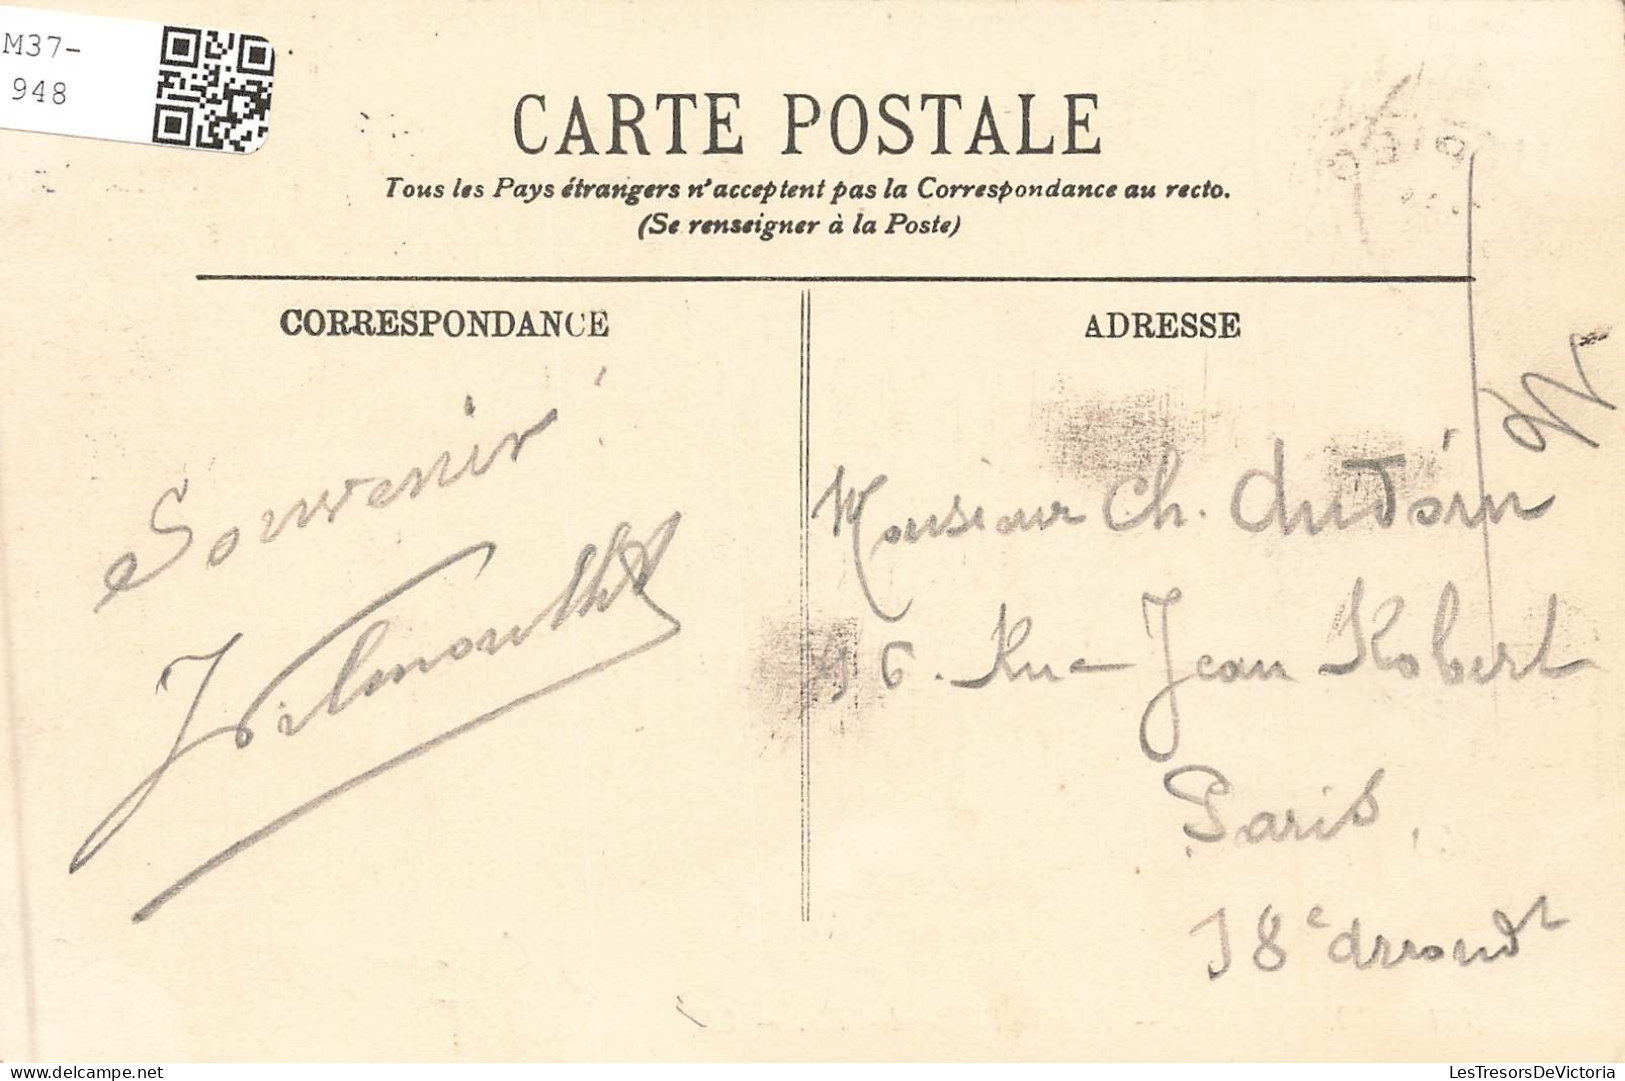 M37-
948
CARTE POSTALE
Tous les Pays étrangers n'acceptent pas la Correspondance au recto.
(Se renseigner à la Poste)
CORRESPONDANCE
ADRESSE
Souvenir !
Monsieur Ch.
Rue Jean Robert
Paris.
18e arrondt
LesTresorsDeVictoria